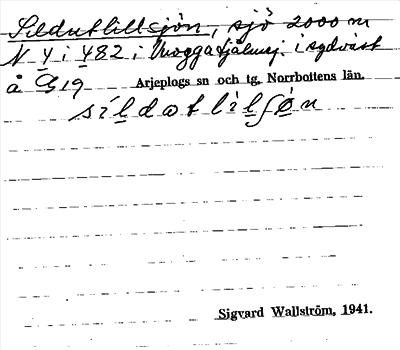 Sildutlillsjön, sjö 2000 m
N 4 i 482 i Muggatjålmej. i sydväst
å G 19 Arjeplogs sn och tg. Norrbottens län.
sildatlilʃøn
Sigvard Wallström, 1941.